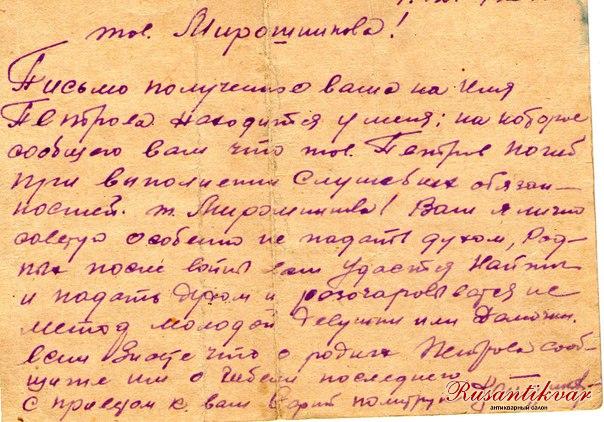 тов. Мирошникова!
Письмо полученно ваше на имя
Петрова находится у меня; на которое
сообщаю вам что тов. Петров погиб
при выполнении служебных обязан-
ностей. т. Мирошникова! Вам я лично
советую особенно не падать духом, Род-
ных после войны вам удастся найти
и падать духом и разочаровыватся не
метод молодой девушки или дамочки.
если знаете что о родных Петрова сооб-
щите им о гибели последнего
с приветом к вам политрук
Rusantikvar
антикварный салон